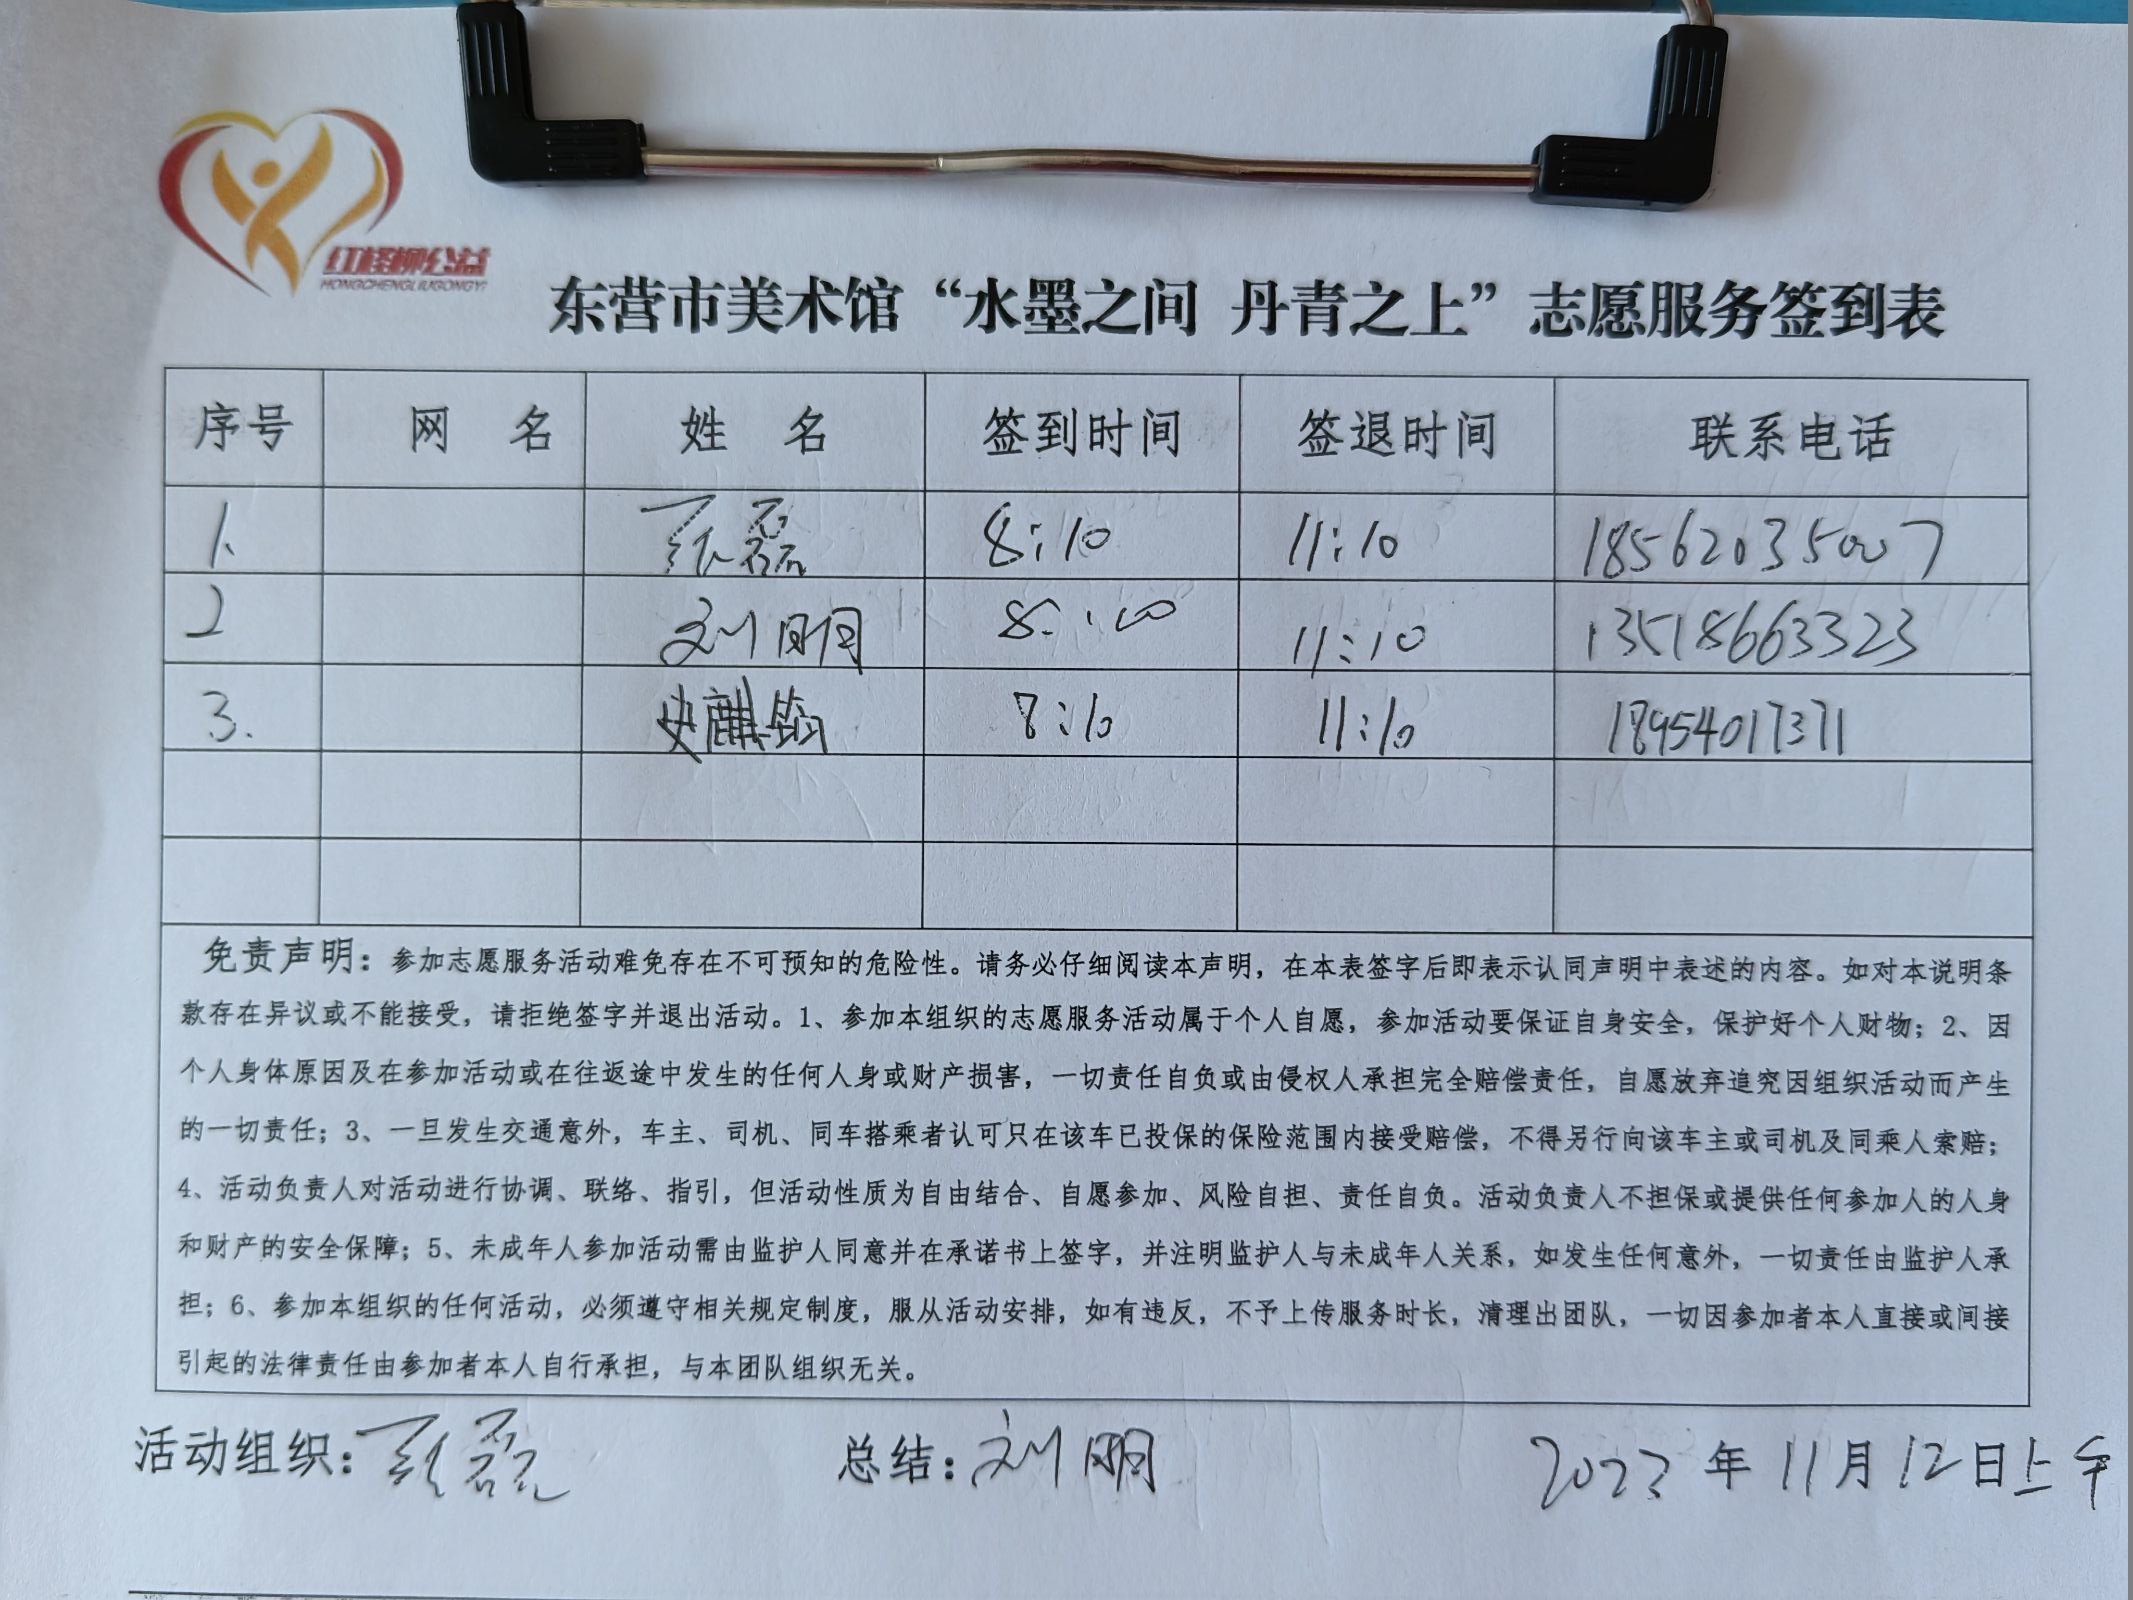 红柽柳公益
HONGCHENGLIUGONGYI
东营市美术馆“水墨之间 丹青之上”志愿服务签到表
序号 网 名 姓 名 签到时间 签退时间 联系电话
1. 磊 8:10 11:10 18562035007
2 刘明明 8:10 11:10 13518663323
3. 史麒 8:10 11:10 18954017371
免责声明：参加志愿服务活动难免存在不可预知的危险性。请务必仔细阅读本声明，在本表签字后即表示认同声明中表述的内容。如对本说明条
款存在异议或不能接受，请拒绝签字并退出活动。1、参加本组织的志愿服务活动属于个人自愿，参加活动要保证自身安全，保护好个人财物；2、因
个人身体原因及在参加活动或在往返途中发生的任何人身或财产损害，一切责任自负或由侵权人承担完全赔偿责任，自愿放弃追究因组织活动而产生
的一切责任；3、一旦发生交通意外，车主、司机、同车搭乘者认可只在该车已投保的保险范围内接受赔偿，不得另行向该车主或司机及同乘人索赔；
4、活动负责人对活动进行协调、联络、指引，但活动性质为自由结合、自愿参加、风险自担、责任自负。活动负责人不担保或提供任何参加人的人身
和财产的安全保障；5、未成年人参加活动需由监护人同意并在承诺书上签字，并注明监护人与未成年人关系，如发生任何意外，一切责任由监护人承
担；6、参加本组织的任何活动，必须遵守相关规定制度，服从活动安排，如有违反，不予上传服务时长，清理出团队，一切因参加者本人直接或间接
引起的法律责任由参加者本人自行承担，与本团队组织无关。
活动组织：磊 总结：刘明明 2023年11月12日上午